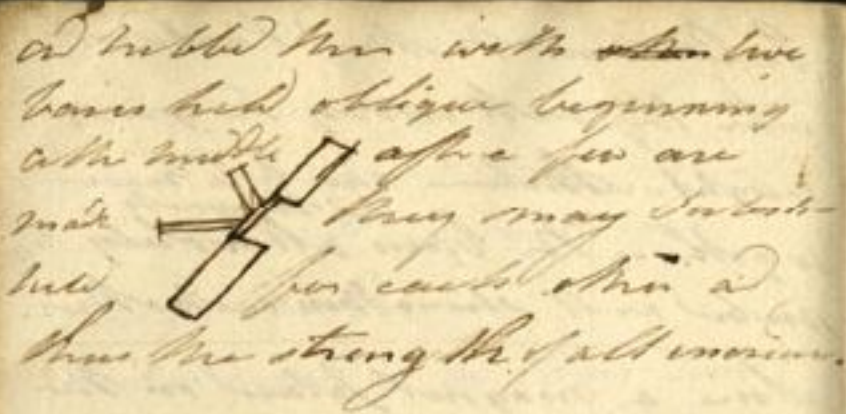 ad rubbd them with two
bars held oblique beginning
at the middle after a few are
made they may be substi-
tuted for each other ad
thus the strength of all increase.